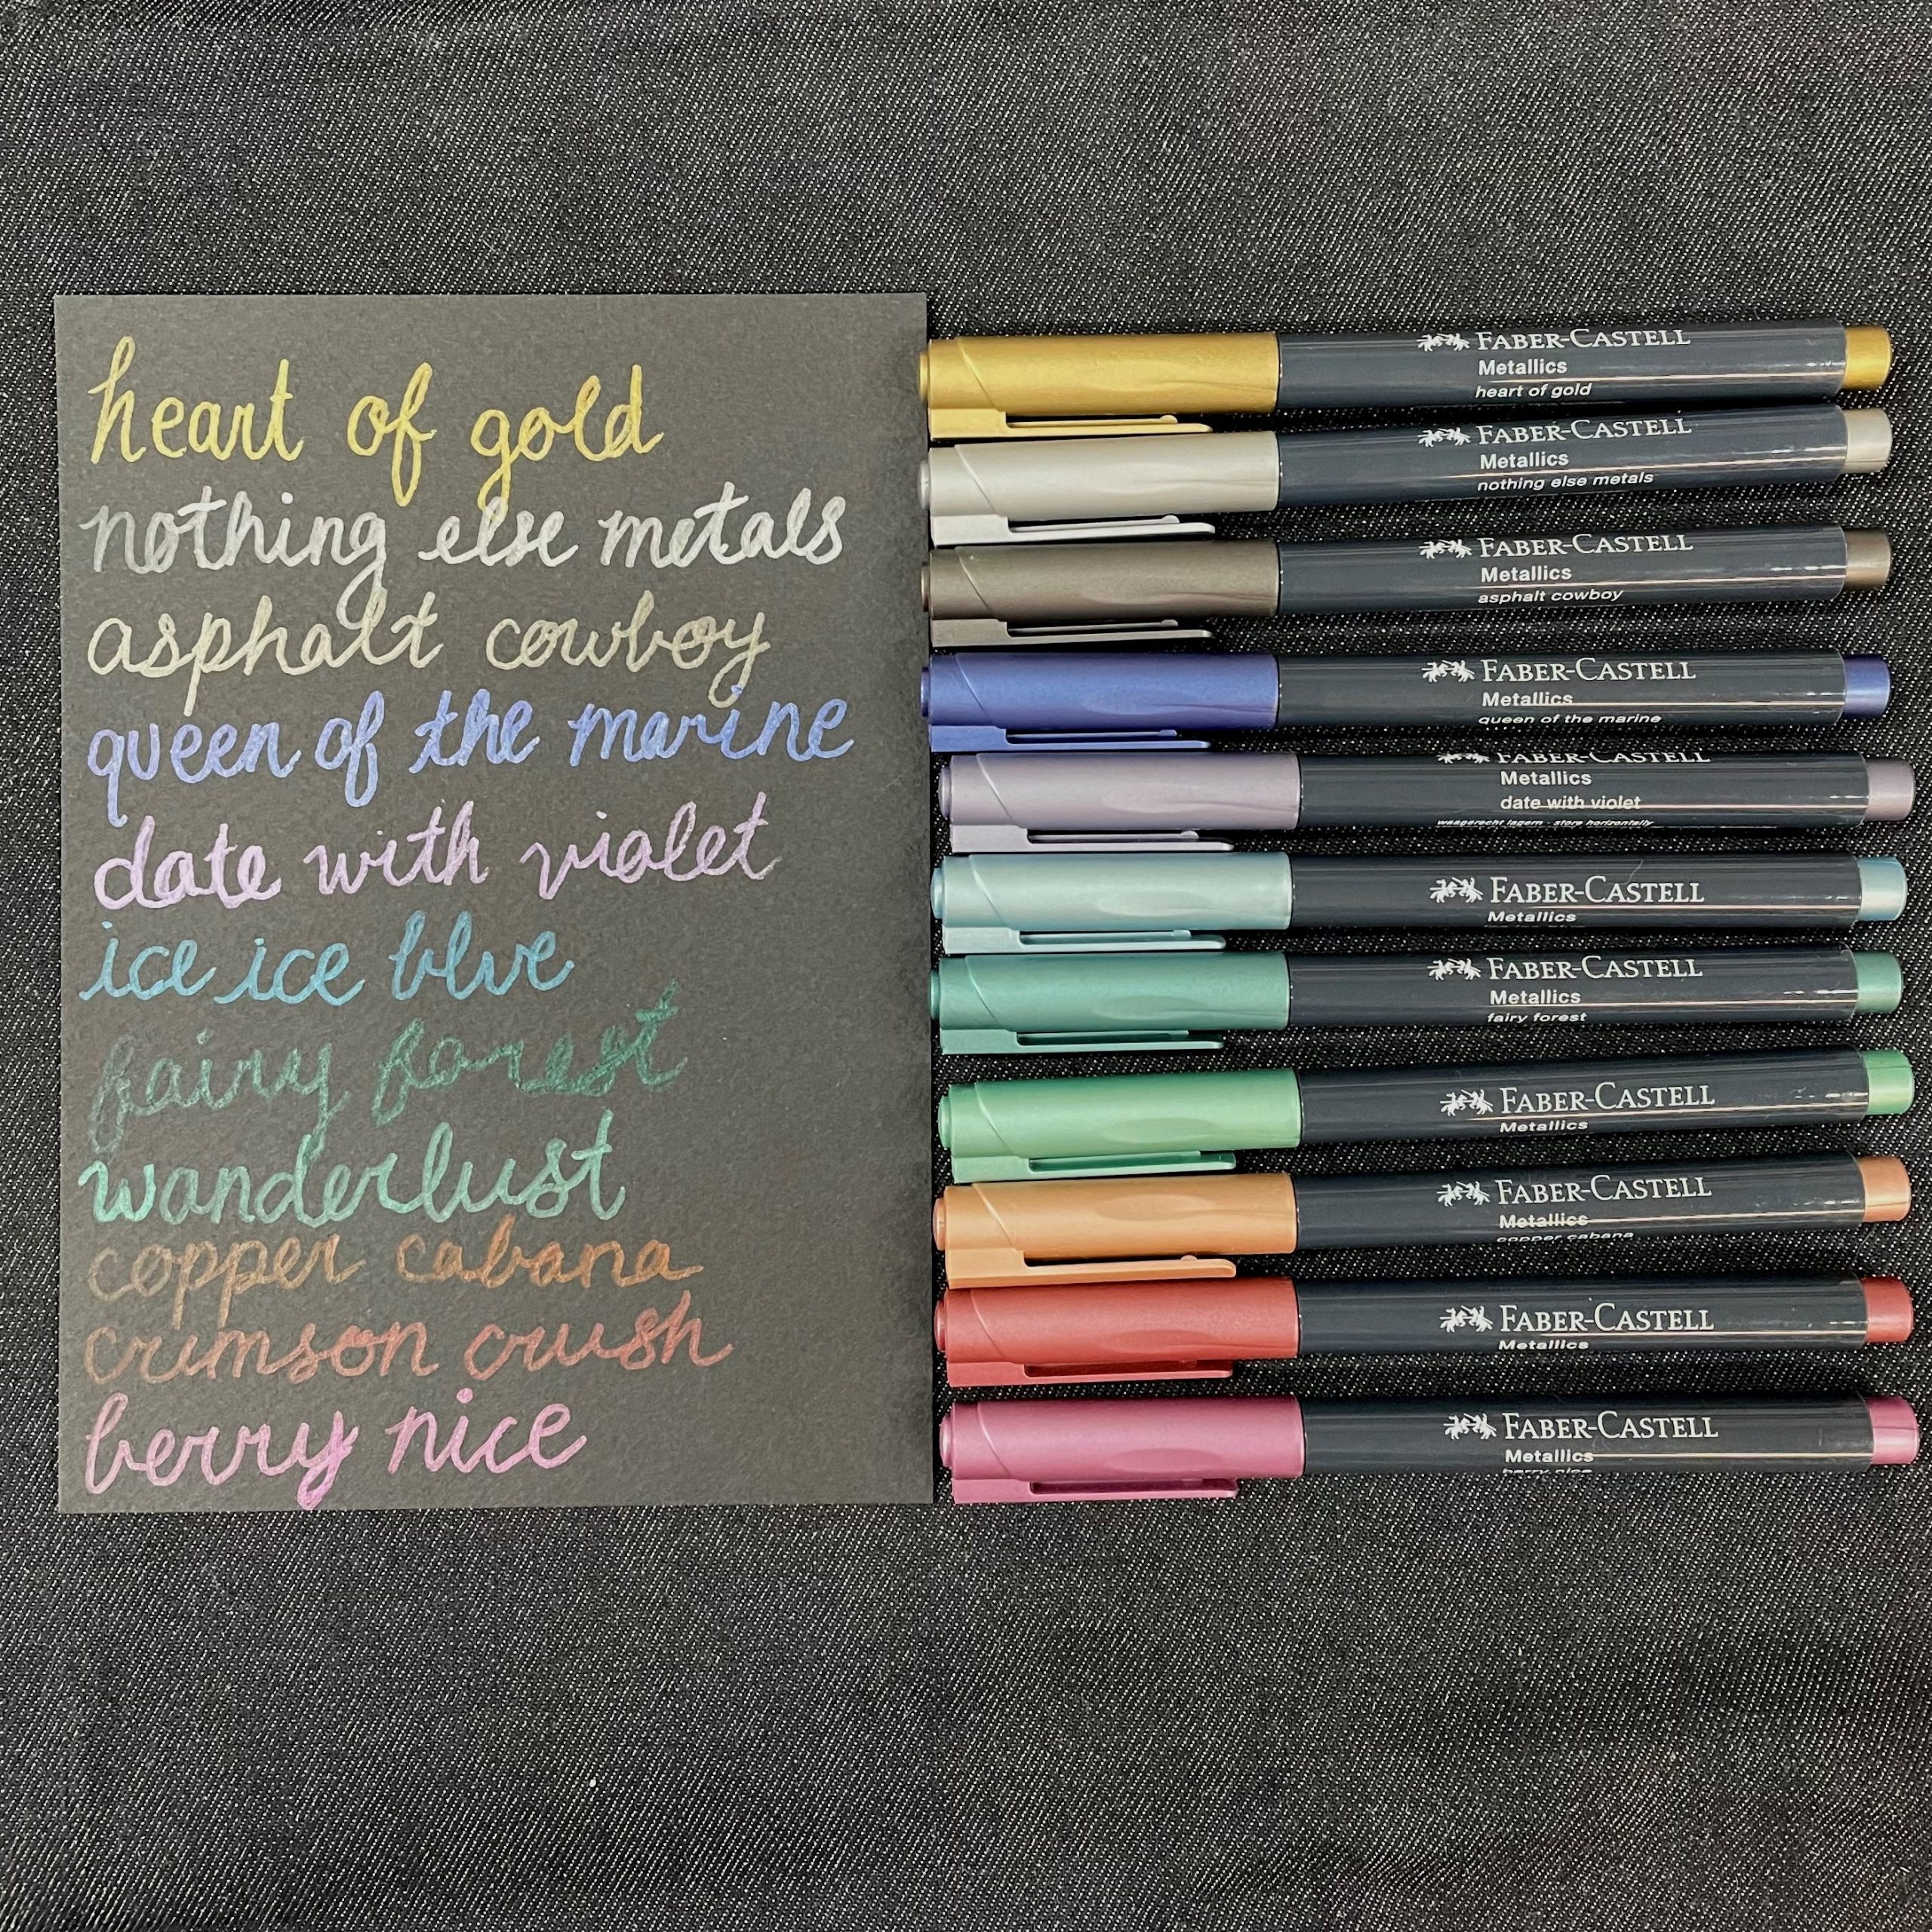 heart of gold
nothing else metals
asphalt cowboy
queen of the marine
date with violet
ice ice blue
fairy forest
wanderlust
copper cabana
crimson crush
berry nice
FABER-CASTELL
Metallics
heart of gold
FABER-CASTELL
Metallics
nothing else metals
FABER-CASTELL
Metallics
asphalt cowboy
FABER-CASTELL
Metallics
queen of the marine
FABER-CASTELL
Metallics
date with violet
waagerecht lagern · store horizontally
FABER-CASTELL
Metallics
FABER-CASTELL
Metallics
fairy forest
FABER-CASTELL
Metallics
FABER-CASTELL
Metallics
copper cabana
FABER-CASTELL
Metallics
FABER-CASTELL
Metallics
berry nice